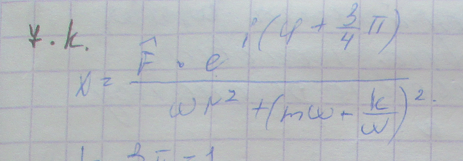 т.к.
x = \frac{\hat{F} \cdot e^{i(φ + \frac{3}{4}π)}}{ω r^2 + (mω - \frac{k}{ω})^2}.